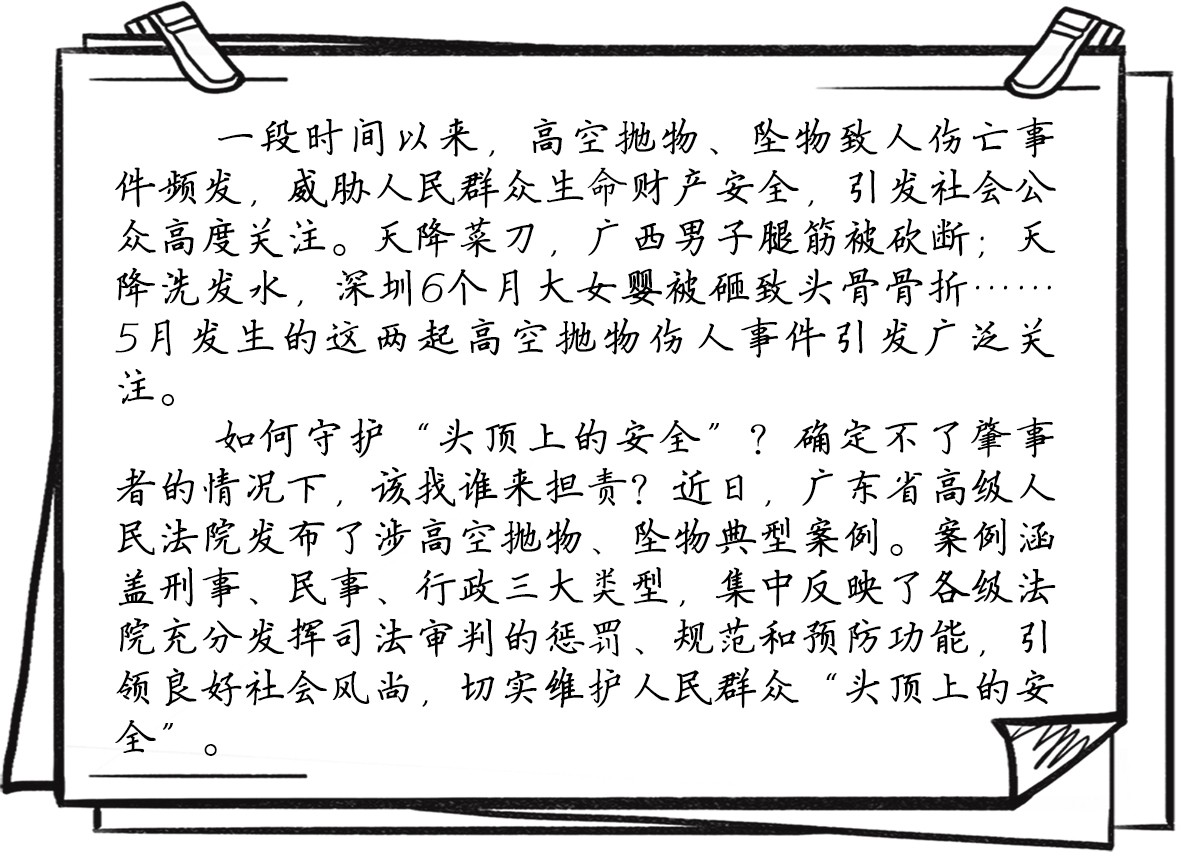 一段时间以来，高空抛物、坠物致人伤亡事
件频发，威胁人民群众生命财产安全，引发社会公
众高度关注。天降菜刀，广西男子腿筋被砍断；天
降洗发水，深圳6个月大女婴被砸致头骨骨折……
5月发生的这两起高空抛物伤人事件引发广泛关
注。
如何守护“头顶上的安全”？确定不了肇事
者的情况下，该找谁来担责？近日，广东省高级人
民法院发布了涉高空抛物、坠物典型案例。案例涵
盖刑事、民事、行政三大类型，集中反映了各级法
院充分发挥司法审判的惩罚、规范和预防功能，引
领良好社会风尚，切实维护人民群众“头顶上的安
全”。